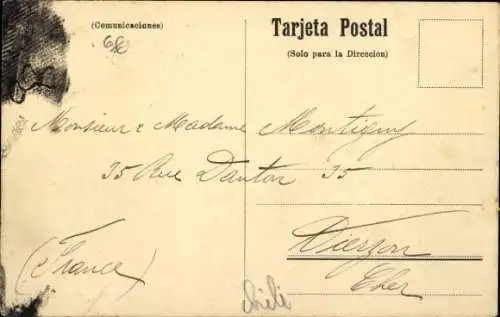 (Comunicaciones)
Tarjeta Postal
(Solo para la Direccion)
Monsieur & Madame Montigny
35 Rue Danton 35
Vierzon
Cher
(France)
chili